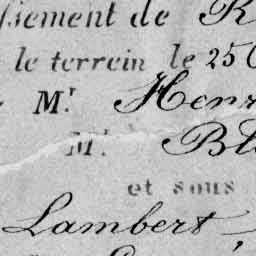 ssement de R
le terrein le 25
Mr. Henr
Mr. Bl
et sous
Lambert,